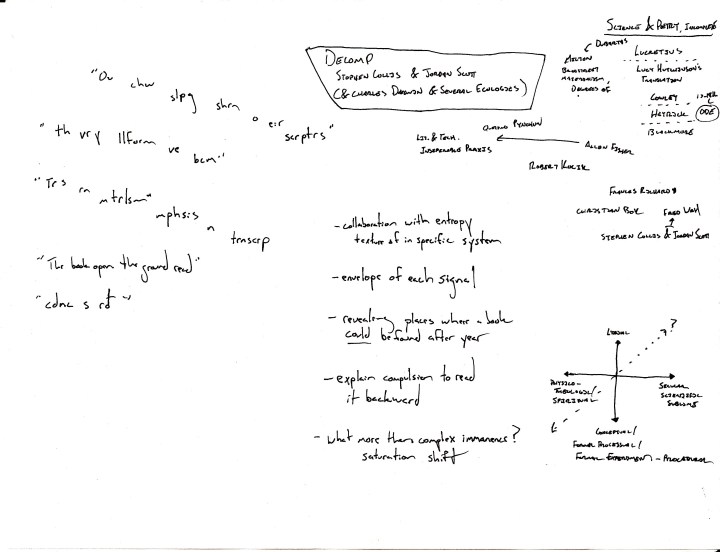 "Ou chw slpg shrn o eir scrptrs"
"th vry llform ve bcm"
"Trs rn mtrlsm"
mphsis n trnscrp
"The book open the ground read"
"cdnc s rd"
DECOMP
STEPHEN COLLIS & JORDAN SCOTT
(& CHARLES DARWIN & SEVERAL ECOLOGIES)
- collaboration with entropy
texture of in specific system
- envelope of each signal
- revealing places where a book
could be found after year
- explain compulsion to read
it backward
- what more than complex immanence?
saturation shift
SCIENCE & POETRY,
LUCRETIUS
LUCY HUTCHINSON'S
TRANSLATION
MILTON
DEGREES OF
COWLEY
HERRICK
ODE
BLACKMORE
PYNCHON
LIT. & TECH.
INSEPARABLE PRAXIS
ALLEN FISHER
ROBERT
FRANCES RICHARD
CHRISTIAN BOK
FRED WAH
STEPHEN COLLIS & JORDAN SCOTT
?
PHYSICO-
THEOLOGICAL/
SPIRITUAL
SECULAR
SCIENTIFIC
SUBLIME
CONCEPTUAL/
FORMAL PROCEDURAL/
FORMAL EXPERIMENT - PROCEDURAL